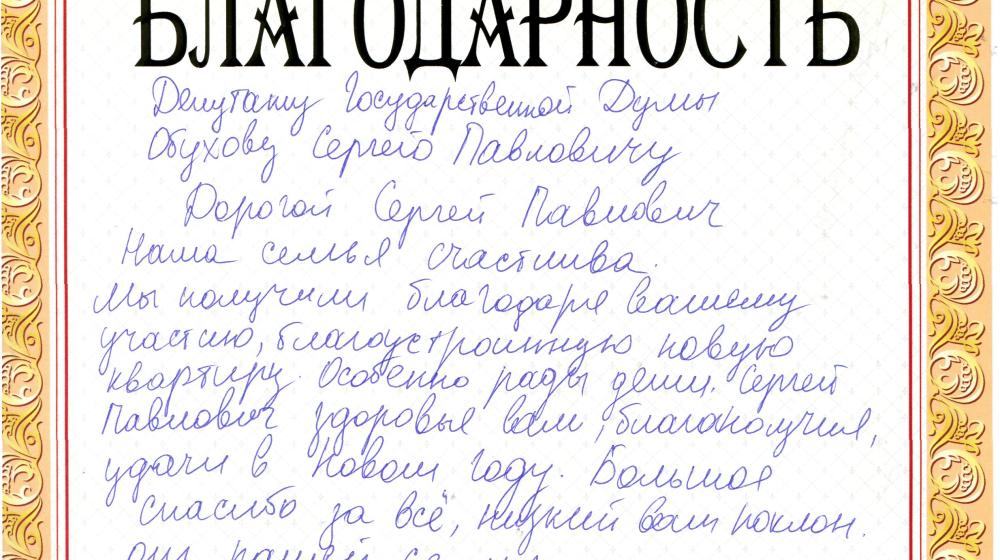 БЛАГОДАРНОСТЬ
Депутату Государственной Думы
Обухову Сергею Павловичу
Дорогой Сергей Павлович
Наша семья счастлива.
Мы получили благодаря вашему
участию, благоустроинную новую
квартиру. Особенно рады дети. Сергей
Павлович здоровья вам, благаполучия,
удачи в Новом году. Большое
спасибо за всё, низкий вам поклон.
от нашей семьи